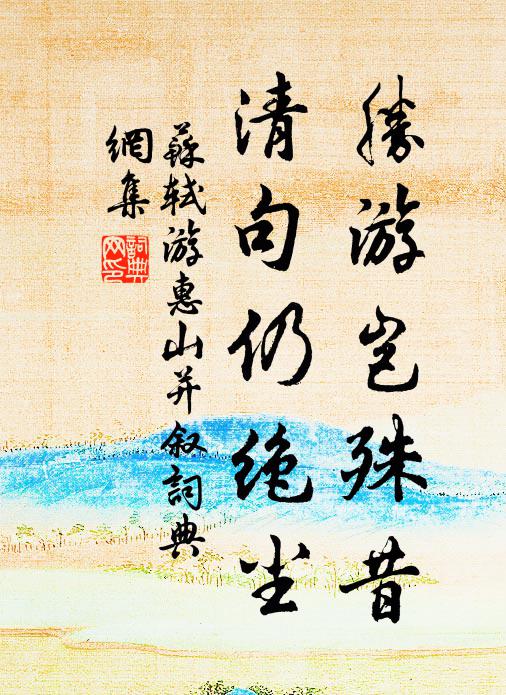 勝游岂殊昔
清句仍绝尘
蘇轼游惠山并叙詞典
網集
詞典
网印